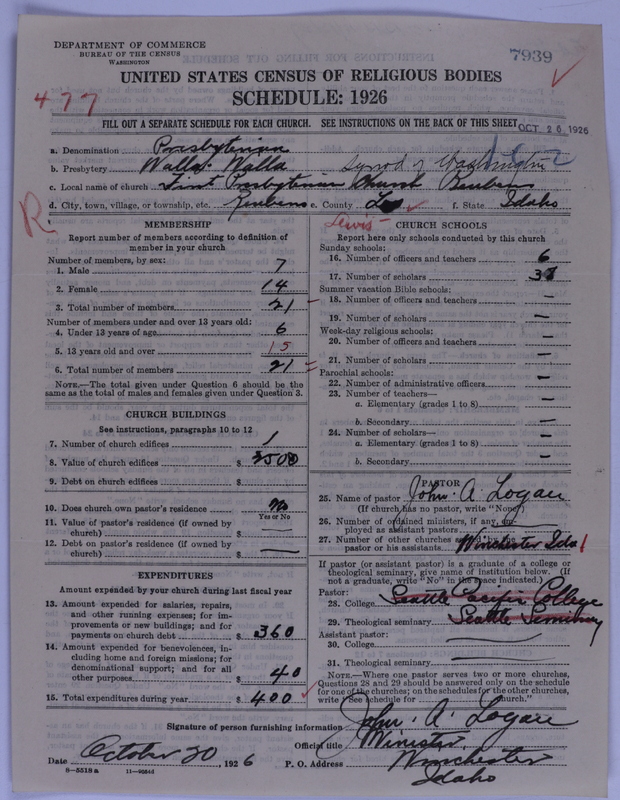 DEPARTMENT OF COMMERCE
BUREAU OF THE CENSUS
WASHINGTON
7939
UNITED STATES CENSUS OF RELIGIOUS BODIES
477
SCHEDULE: 1926
FILL OUT A SEPARATE SCHEDULE FOR EACH CHURCH. SEE INSTRUCTIONS ON THE BACK OF THIS SHEET
OCT 26 1926
a. Denomination Presbyterian
b. Presbytery Walla Walla Synod of Washington
c. Local name of church First Presbyterian Church Reubens
d. City, town, village, or township, etc. Reubens e. County Lewis f. State Idaho
R
MEMBERSHIP
Report number of members according to definition of member in your church
Number of members, by sex:
1. Male 7
2. Female 14
3. Total number of members 21
Number of members under and over 13 years old:
4. Under 13 years of age 6
5. 13 years old and over 15
6. Total number of members 21
NOTE.—The total given under Question 6 should be the
same as the total of males and females given under Question 3.
CHURCH BUILDINGS
See instructions, paragraphs 10 to 12
7. Number of church edifices 1
8. Value of church edifices $ 2500
9. Debt on church edifices $
10. Does church own pastor's residence No
Yes or No
11. Value of pastor's residence (if owned by
church) $ —
12. Debt on pastor's residence (if owned by
church) $ —
EXPENDITURES
Amount expended by your church during last fiscal year
13. Amount expended for salaries, repairs,
and other running expenses; for im-
provements or new buildings; and for
payments on church debt $ 360
14. Amount expended for benevolences, in-
cluding home and foreign missions; for
denominational support; and for all
other purposes $ 40
15. Total expenditures during year $ 400
CHURCH SCHOOLS
Report here only schools conducted by this church
Sunday schools:
16. Number of officers and teachers 6
17. Number of scholars
Summer vacation Bible schools:
18. Number of officers and teachers —
19. Number of scholars —
Week-day religious schools:
20. Number of officers and teachers —
21. Number of scholars —
Parochial schools:
22. Number of administrative officers —
23. Number of teachers—
a. Elementary (grades 1 to 8) —
b. Secondary —
24. Number of scholars—
a. Elementary (grades 1 to 8) —
b. Secondary —
PASTOR
25. Name of pastor John A Logan
(If church has no pastor, write "None")
26. Number of ordained ministers, if any, em-
ployed as assistant pastors —
27. Number of other churches
pastor or his assistants Winchester Ida 1
If pastor (or assistant pastor) is a graduate of a college or
theological seminary, give name of institution below. (If
not a graduate, write "No" in the line indicated.)
Pastor:
28. College Seattle Pacific College
29. Theological seminary Seattle Seminary
Assistant pastor:
30. College
31. Theological seminary
NOTE.—Where one pastor serves two or more churches,
Questions 28 and 29 should be answered only on the schedule
for one of the churches; on the schedules for the other churches,
write "See schedule for church."
Signature of person furnishing information John A. Logan
Official title Minister
Date October 20, 1926 P. O. Address Winchester
Idaho
8-5518a 11-90544